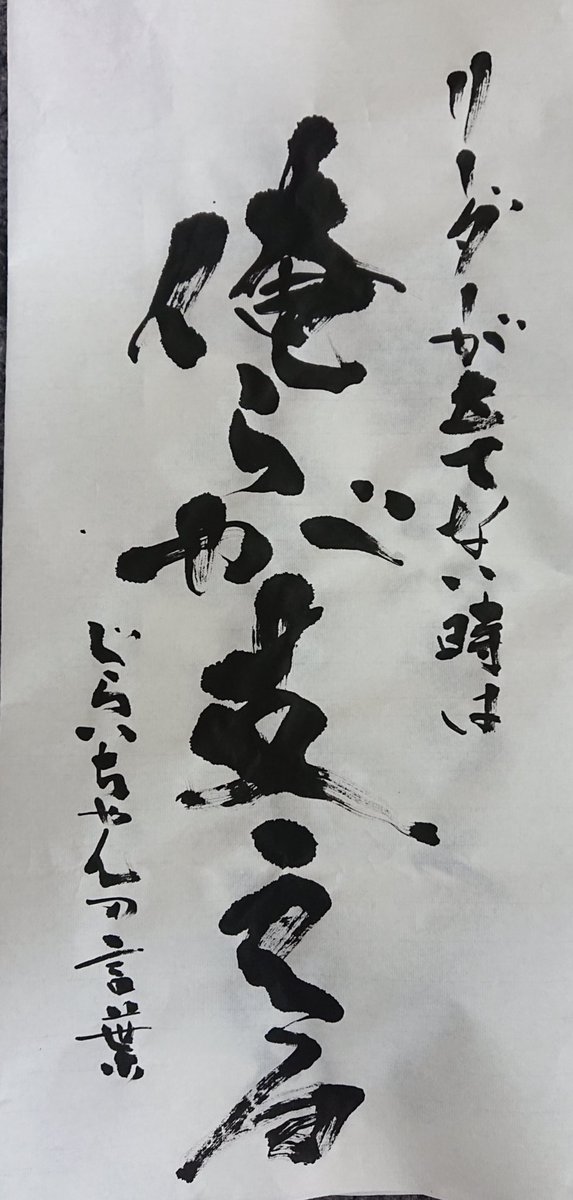 リーダーが立てない時は
俺らが支える
じらいちゃんの言葉